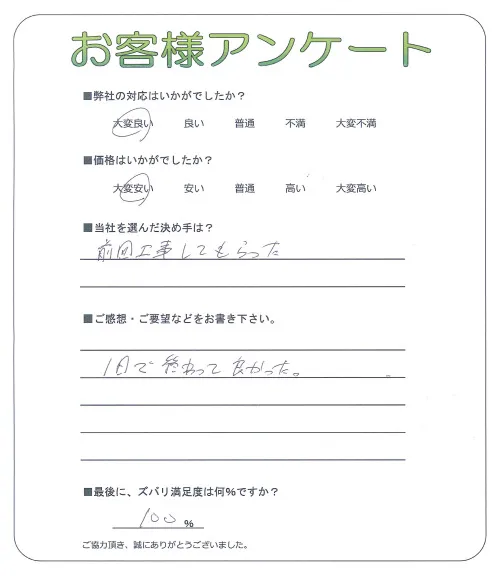 お客様アンケート
■弊社の対応はいかがでしたか？
大変良い 良い 普通 不満 大変不満
■価格はいかがでしたか？
大変安い 安い 普通 高い 大変高い
■当社を選んだ決め手は？
前回工事してもらった
■ご感想・ご要望などをお書き下さい。
1日で終わって良かった。
■最後に、ズバリ満足度は何%ですか？
100%
ご協力頂き、誠にありがとうございました。